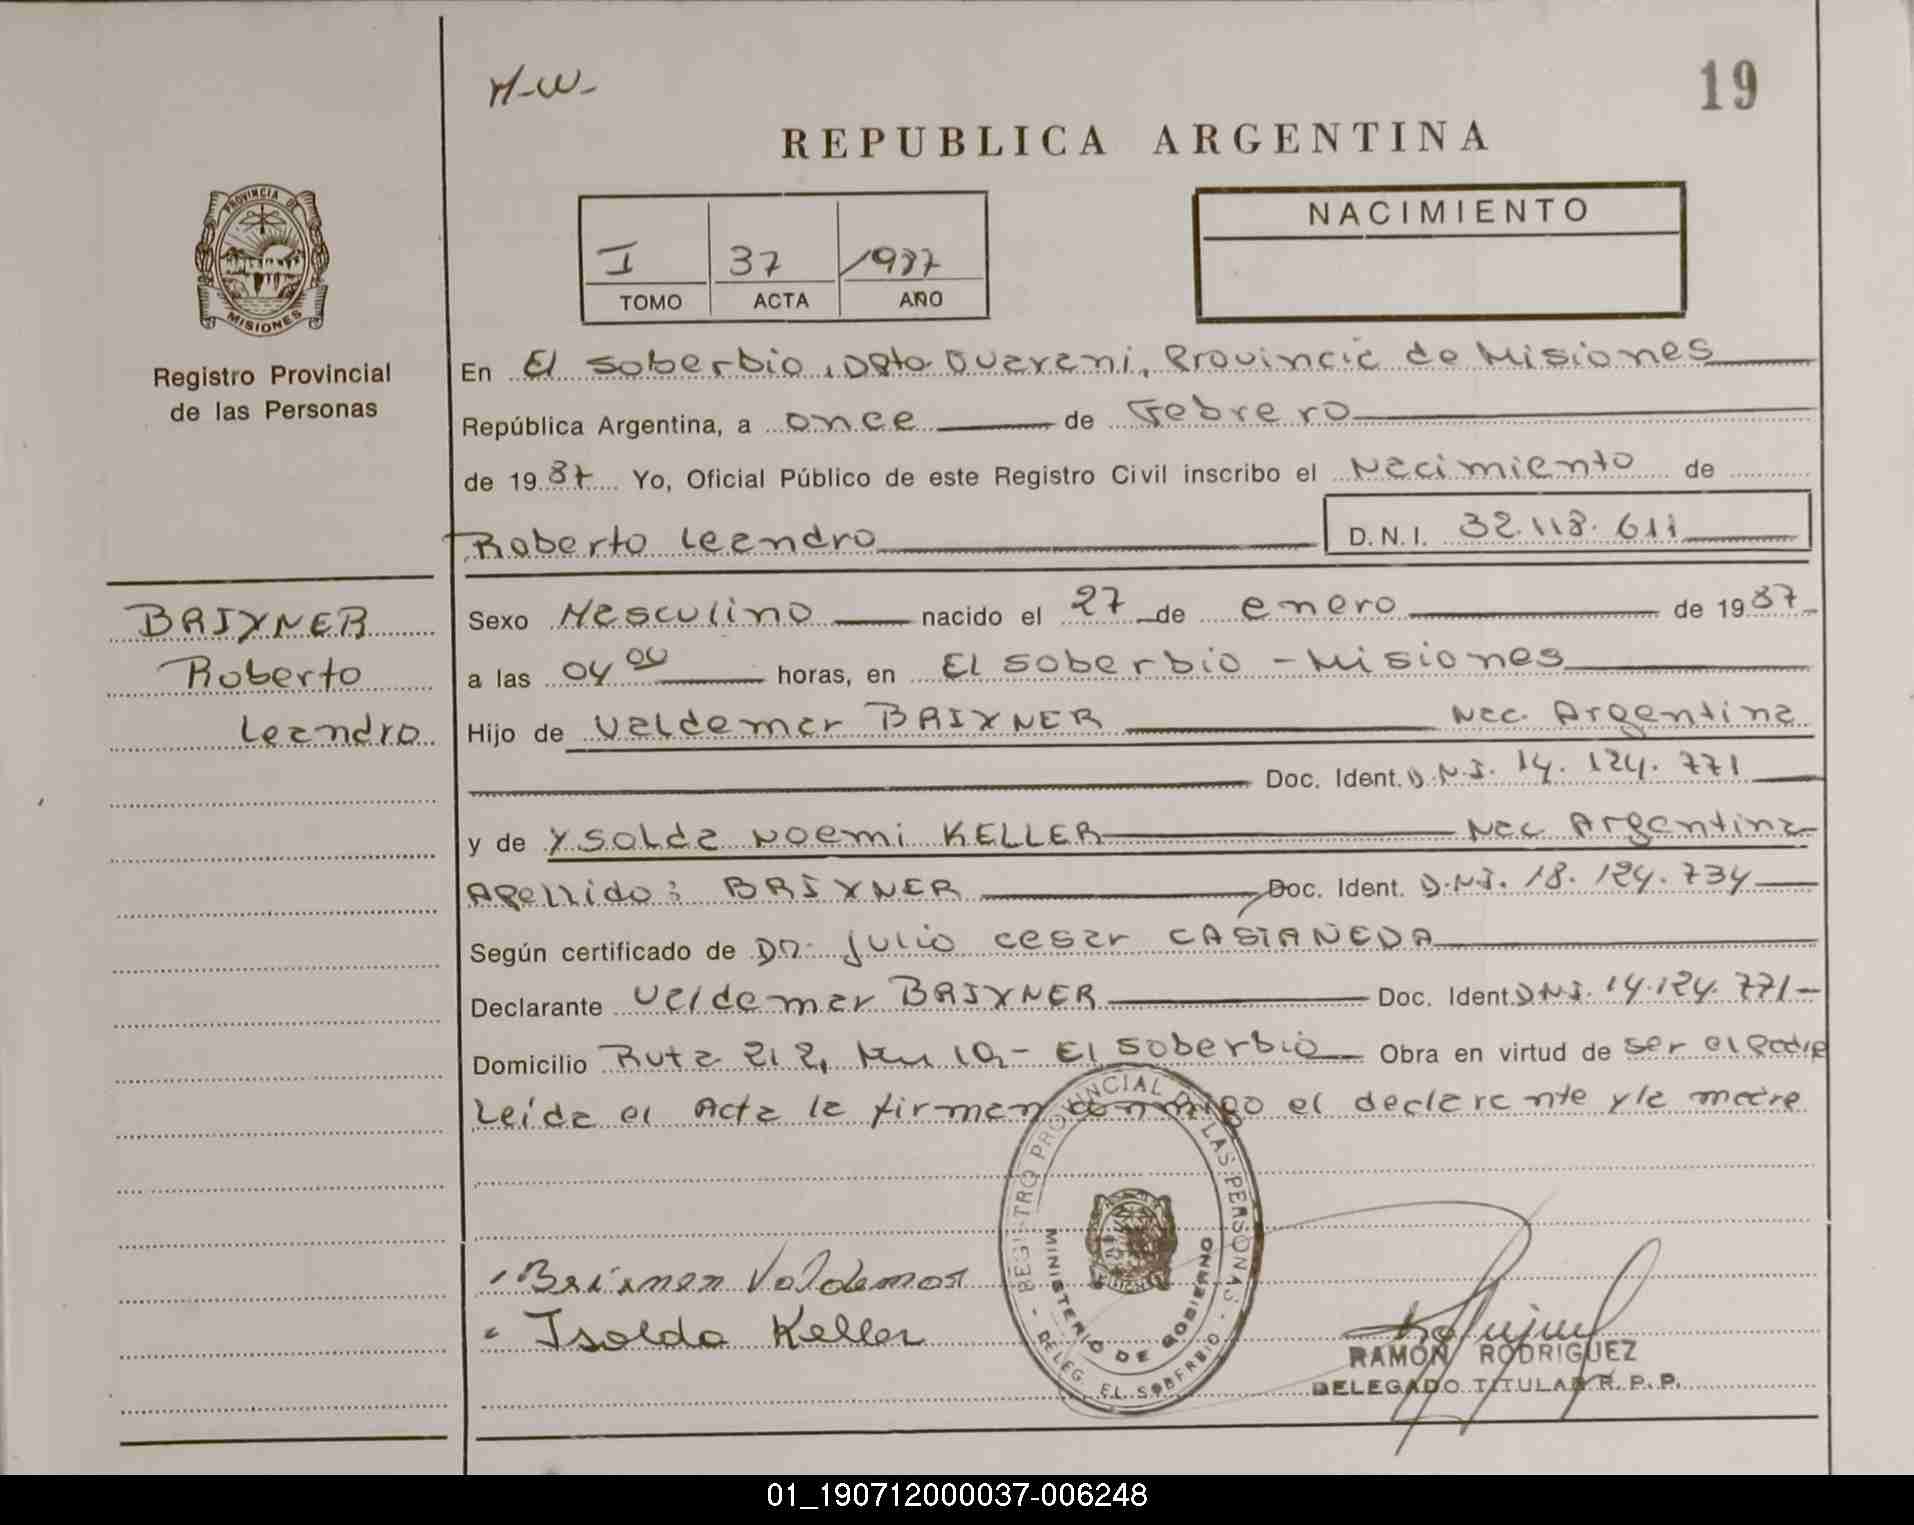 M-W-
19
REPUBLICA ARGENTINA
PROVINCIA DE
MISIONES
Registro Provincial
de las Personas
I 37 1987
TOMO ACTA AÑO
NACIMIENTO
En El Soberbio, Dpto Guarani, Provincia de Misiones
República Argentina, a once de Febrero
de 1987 Yo, Oficial Público de este Registro Civil inscribo el Nacimiento de
Roberto Leandro D.N.I. 32.118.611
BRIXNER
Roberto
Leandro
Sexo Masculino nacido el 27 de enero de 1987
a las 04 00 horas, en El Soberbio - Misiones
Hijo de Valdemar BRIXNER Nac. Argentina
Doc. Ident. D.N.I. 14.124.771
y de Ysolda Noemi KELLER Nac Argentina
Apellido: BRIXNER Doc. Ident. D.N.I. 18.124.734
Según certificado de Dr. Julio Cesar CASTAÑEDA
Declarante Valdemar BRIXNER Doc. Ident. D.N.I. 14.124.771-
Domicilio Ruta 212, Km 10 - El Soberbio Obra en virtud de ser el padre
Leída el Acta la firman conmigo el declarante y la madre
REGISTRO PROVINCIAL DE LAS PERSONAS
MINISTERIO DE GOBIERNO
- DELEG. EL SOBERBIO -
Brixner Valdemar
Isolda Keller
RAMÓN RODRIGUEZ
DELEGADO TITULAR R.P.P.
01_190712000037-006248